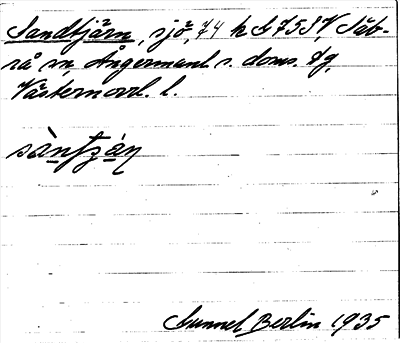 Sandtjärn, sjö, 74 h G 7 5 S V Säb-
rå sn, Ångermanl. s. doms. dg,
Västernorrl. l.
sàntʒá̱n
Gunnel Berlin 1935